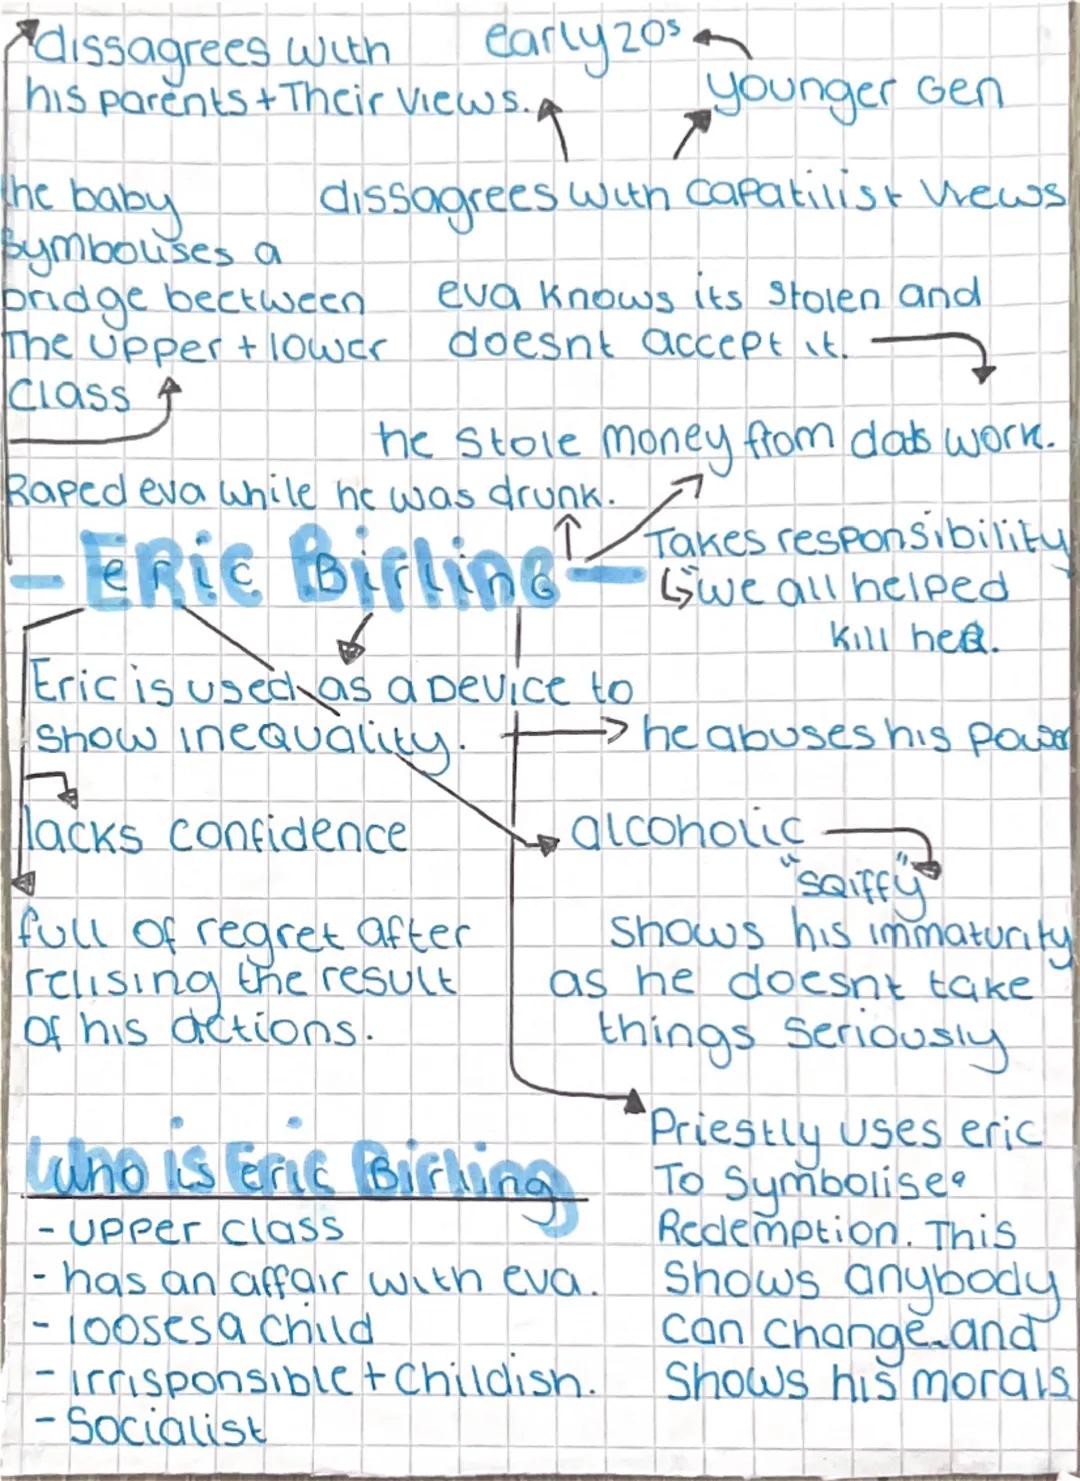 dissagrees with
his parents + Their views.
early 20s
younger Gen
dissagrees with capatilist views
the baby
symbolises a
bridge bectween
The upper + lower
Class
eva knows its stolen and
doesnt accept it.
he stole money from dads work.
Raped eva while he was drunk.
- ERIC Birling -
Takes responsibility
"we all helped
kill her.
Eric is used as a Device to
show inequality.
he abuses his power
lacks confidence
alcoholic
"sqiffy"
shows his immaturity
as he doesnt take
things seriously
full of regret after
relising the result
of his actions.
Priestly uses eric
To Symbolise
Redemption. This
shows anybody
can change and
shows his morals
Who is Eric Birling
- upper class
- has an affair with eva.
- looses a child
- irrisponsible + childish.
- Socialist